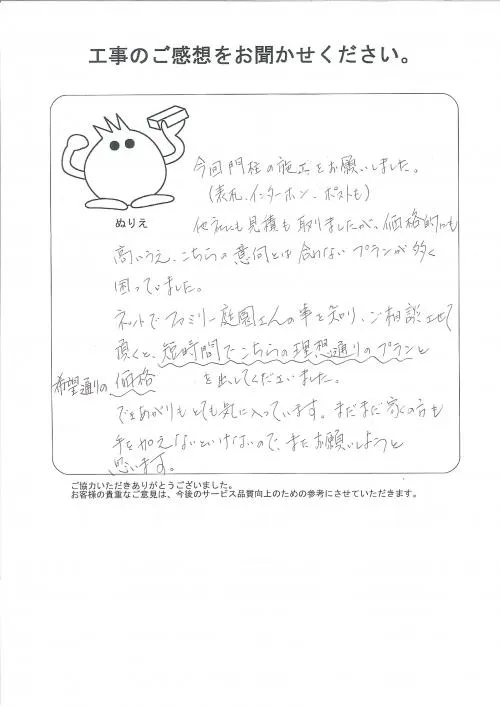 工事のご感想をお聞かせください。
今回門柱の施工をお願いしました。
(表札、インターホン、ポストも)
ぬりえ
他社にも見積も取りましたが、価格的にも
高いうえ、こちらの意向とは合わないプランが多く
困っていました。
ネットでファミリー庭園さんの事を知り、ご相談させて
頂くと、短時間でこちらの理想通りのプランと
希望通りの価格 を出してくださいました。
でき上がりもとても気に入っています。まだまだ家の方も
手を加えないといけないので、またお願いしようと
思います。
ご協力いただきありがとうございました。
お客様の貴重なご意見は、今後のサービス品質向上のための参考にさせていただきます。